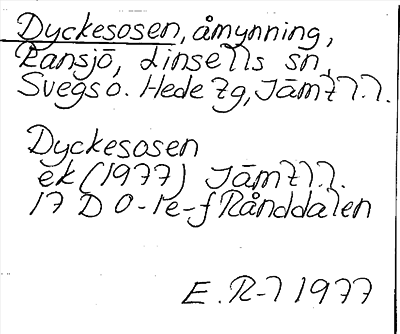 Dyckesosen, åmynning,
Ransjö, Linsells sn,
Svegs o. Hede tg, Jämtl.l.
Dyckesosen
ek (1977) Jämtl.l.
17 D 0-1e-f Rånddalen
E. R-l 1977